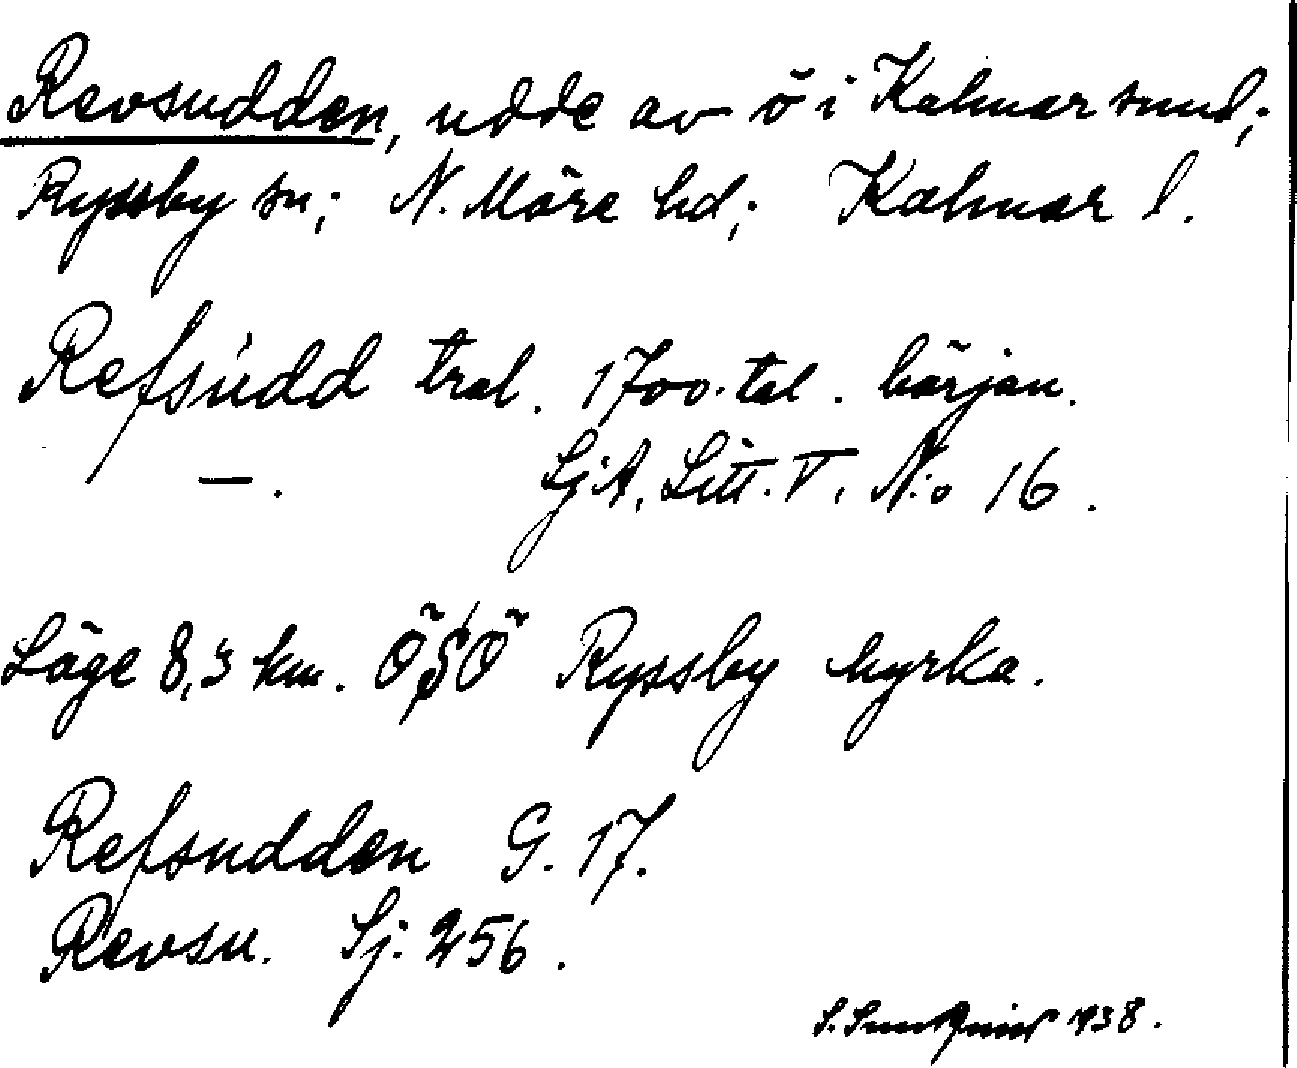 Revsudden, udde av ö i Kalmar sund;
Ryssby sn; N. Möre hd; Kalmar l.
Refsudd tral. 1700-tal. början.
—. SjA, Litt. V, N:o 16.
Läge 8,3 km. ÖSÖ Ryssby kyrka.
Refsudden G. 17.
Revsu. Sj. 256.
S. 1938.